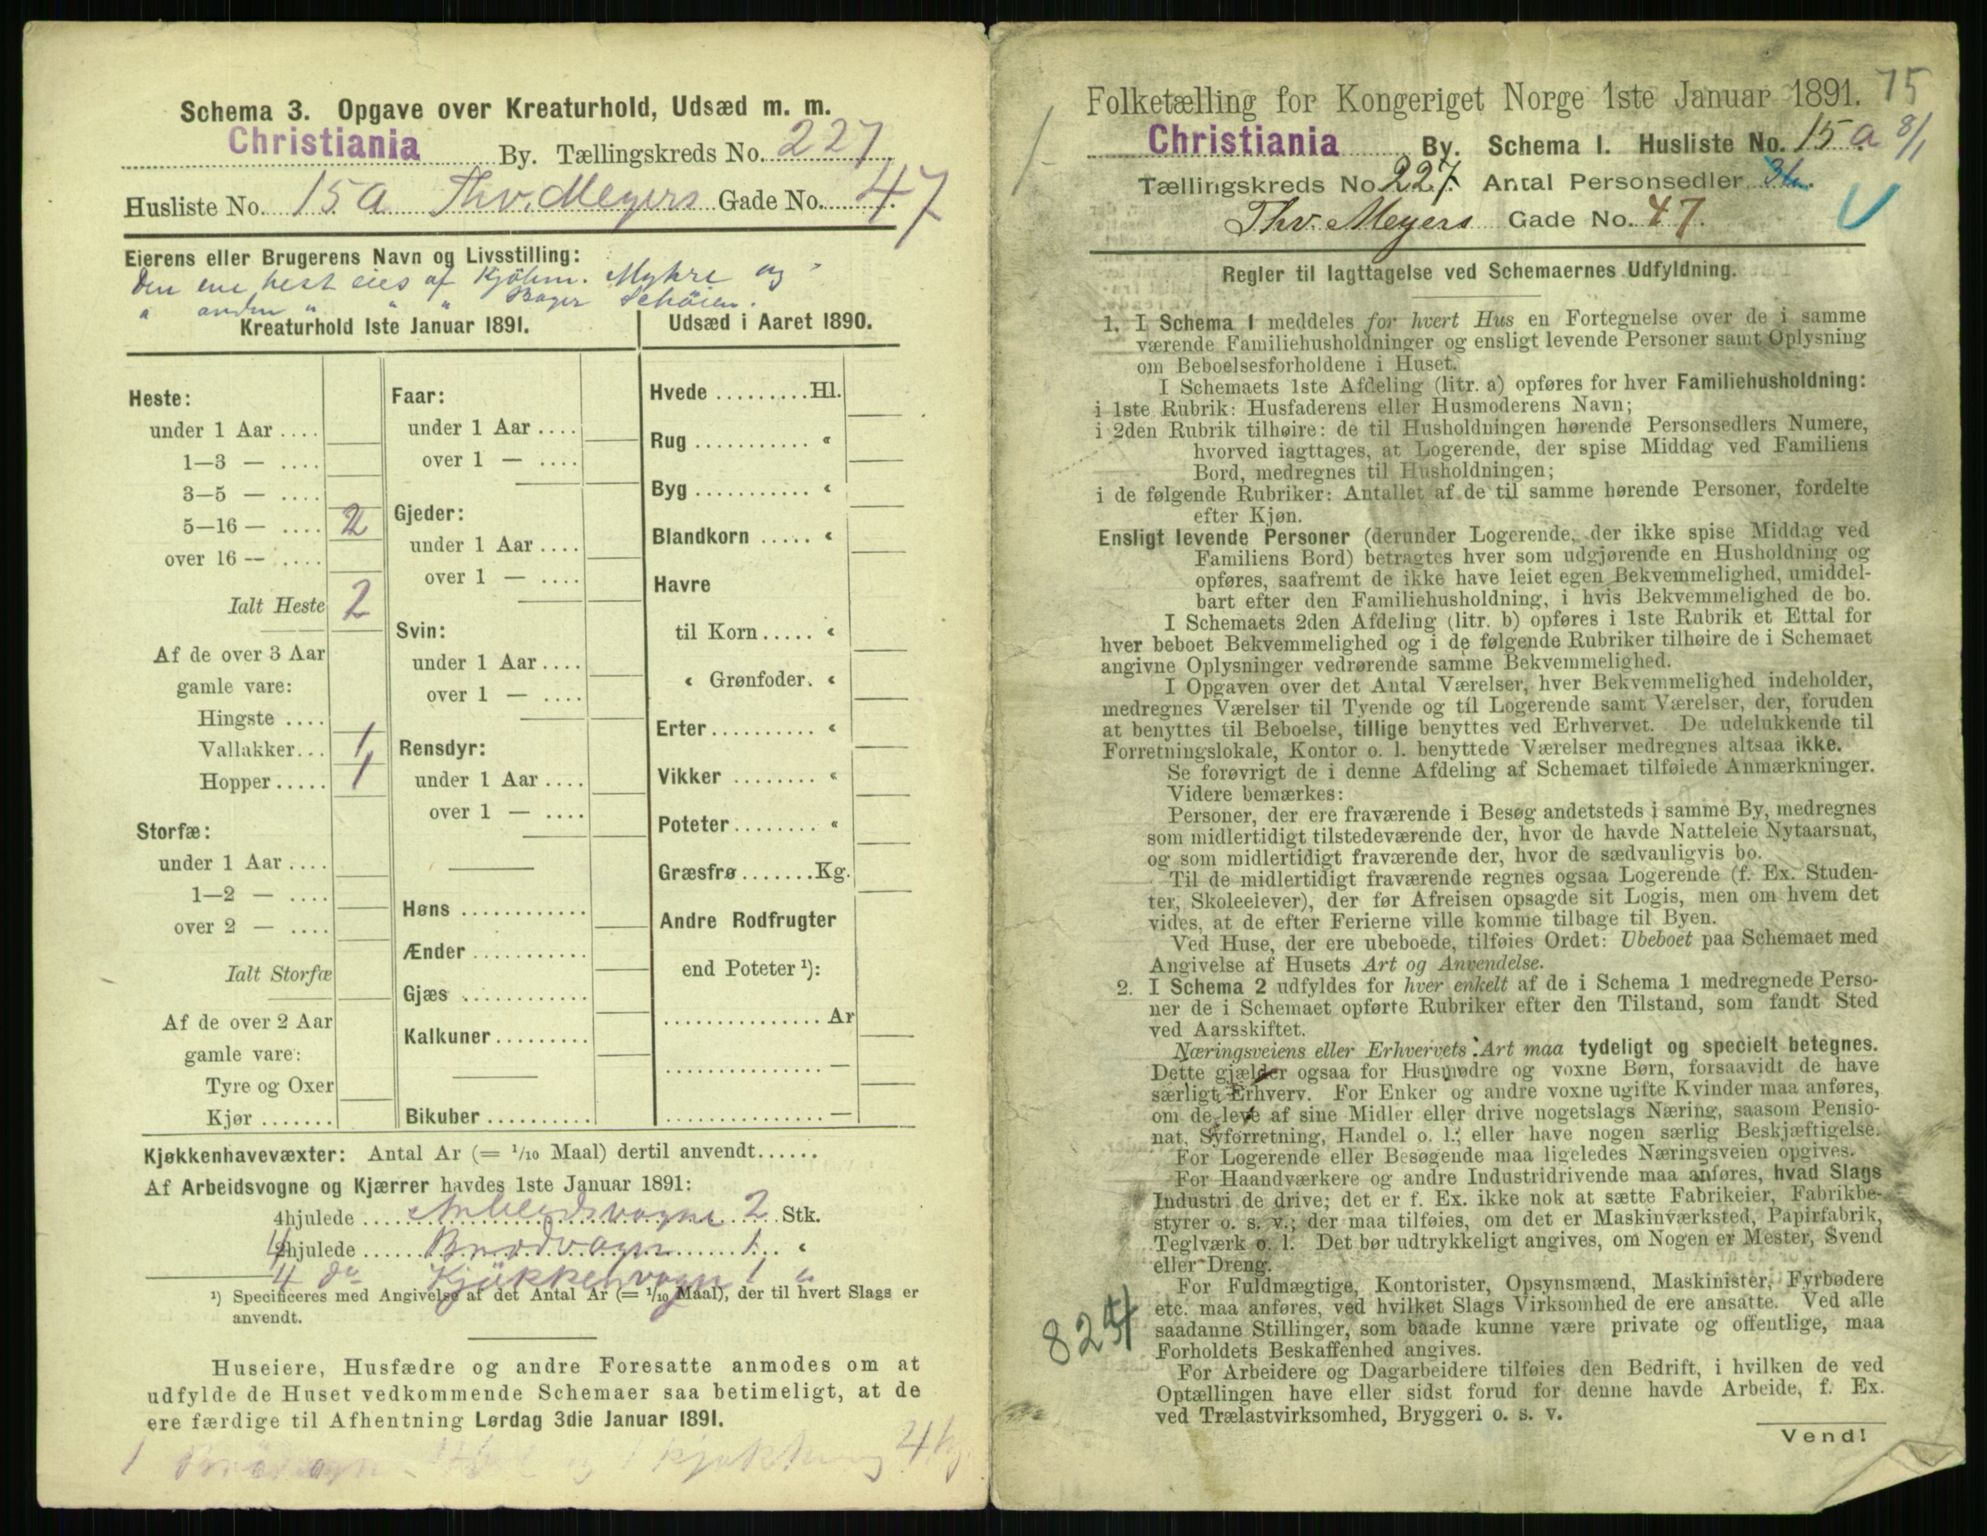 Schema 3. Opgave over Kreaturhold, Udsæd m. m.
Christiania By. Tællingskreds No. 227
Husliste No. 15a Thv. Meyers Gade No. 47
Eierens eller Brugerens Navn og Livsstilling:
Den ene hest eies af Kjöbm. Myhre og
" anden " " " Bager Schöien.
Kreaturhold 1ste Januar 1891.
Heste:
under 1 Aar ....
1—3 — ....
3—5 — ....
5—16 — .... 2
over 16 — ....
Ialt Heste 2
Af de over 3 Aar
gamle vare:
Hingste ....
Vallakker... 1
Hopper..... 1
Storfæ:
under 1 Aar ....
1—2 — ....
over 2 — ....
Ialt Storfæ
Af de over 2 Aar
gamle vare:
Tyre og Oxer
Kjør ......
Faar:
under 1 Aar ....
over 1 — ....
Gjeder:
under 1 Aar ....
over 1 — ....
Svin:
under 1 Aar ....
over 1 — ....
Rensdyr:
under 1 Aar ....
over 1 — ....
Høns ............
Ænder ...........
Gjæs ............
Kalkuner.........
Bikuber ..........
Udsæd i Aaret 1890.
Hvede .........Hl.
Rug ........... «
Byg ........... «
Blandkorn ..... «
Havre
til Korn..... «
« Grønfoder. «
Erter .......... «
Vikker ........ «
Poteter........ «
Græsfrø.......Kg.
Andre Rodfrugter
end Poteter ¹):
............... Ar
............... —
............... —
Kjøkkenhavevæxter: Antal Ar (= 1/10 Maal) dertil anvendt......
Af Arbeidsvogne og Kjærrer havdes 1ste Januar 1891:
4hjulede .... Arbeidsvogne 2 Stk.
4hjulede .... Brødvogn 1 «
4 do Kjøkkenvogn 1 "
¹) Specificeres med Angivelse af det Antal Ar (= 1/10 Maal), der til hvert Slags er
anvendt.
Huseiere, Husfædre og andre Foresatte anmodes om at
udfylde de Huset vedkommende Schemaer saa betimeligt, at de
ere færdige til Afhentning Lørdag 3die Januar 1891.
Folketælling for Kongeriget Norge 1ste Januar 1891. 75
Christiania By. Schema I. Husliste No. 15a 8/1
Tællingskreds No. 227. Antal Personsedler
Thv. Meyers Gade No. 47.
Regler til Iagttagelse ved Schemaernes Udfyldning.
1. I Schema 1 meddeles for hvert Hus en Fortegnelse over de i samme
værende Familiehusholdninger og ensligt levende Personer samt Oplysning
om Beboelsesforholdene i Huset.
I Schemaets 1ste Afdeling (litr. a) opføres for hver Familiehusholdning:
i 1ste Rubrik: Husfaderens eller Husmoderens Navn;
i 2den Rubrik tilhøire: de til Husholdningen hørende Personsedlers Numere,
hvorved iagttages, at Logerende, der spise Middag ved Familiens
Bord, medregnes til Husholdningen;
i de følgende Rubriker: Antallet af de til samme hørende Personer, fordelte
efter Kjøn.
Ensligt levende Personer (derunder Logerende, der ikke spise Middag ved
Familiens Bord) betragtes hver som udgjørende en Husholdning og
opføres, saafremt de ikke have leiet egen Bekvemmelighed, umiddel-
bart efter den Familiehusholdning, i hvis Bekvemmelighed de bo.
I Schemaets 2den Afdeling (litr. b) opføres i 1ste Rubrik et Ettal for
hver beboet Bekvemmelighed og i de følgende Rubriker tilhøire de i Schemaet
angivne Oplysninger vedrørende samme Bekvemmelighed.
I Opgaven over det Antal Værelser, hver Bekvemmelighed indeholder,
medregnes Værelser til Tyende og til Logerende samt Værelser, der, foruden
at benyttes til Beboelse, tillige benyttes ved Erhvervet. De udelukkende til
Forretningslokale, Kontor o. l. benyttede Værelser medregnes altsaa ikke.
Se forøvrigt de i denne Afdeling af Schemaet tilføiede Anmærkninger.
Videre bemærkes:
Personer, der ere fraværende i Besøg andetsteds i samme By, medregnes
som midlertidigt tilstedeværende der, hvor de havde Natteleie Nytaarsnat,
og som midlertidigt fraværende der, hvor de sædvanligvis bo.
Til de midlertidigt fraværende regnes ogsaa Logerende (f. Ex. Studen-
ter, Skoleelever), der før Afreisen opsagde sit Logis, men om hvem det
vides, at de efter Ferierne ville komme tilbage til Byen.
Ved Huse, der ere ubeboede, tilføies Ordet: Ubeboet paa Schemaet med
Angivelse af Husets Art og Anvendelse.
2. I Schema 2 udfyldes for hver enkelt af de i Schema 1 medregnede Perso-
ner de i Schemaet opførte Rubriker efter den Tilstand, som fandt Sted
ved Aarsskiftet.
Næringsveiens eller Erhvervets Art maa tydeligt og specielt betegnes.
Dette gjælder ogsaa for Husmødre og voxne Børn, forsaavidt de have
særligt Erhverv. For Enker og andre voxne ugifte Kvinder maa anføres,
om de leve af sine Midler eller drive nogetslags Næring, saasom Pensio-
nat, Syforretning, Handel o. l., eller have nogen særlig Beskjæftigelse.
For Logerende eller Besøgende maa ligeledes Næringsveien opgives.
For Haandværkere og andre Industridrivende maa anføres, hvad Slags
Industri de drive; det er f. Ex. ikke nok at sætte Fabrikeier, Fabrikbe-
styrer o. s. v.; der maa tilføies, om det er Maskinværksted, Papirfabrik,
Teglværk o. l. Det bør udtrykkeligt angives, om Nogen er Mester, Svend
eller Dreng.
For Fuldmægtige, Kontorister, Opsynsmænd, Maskinister, Fyrbødere
etc. maa anføres, ved hvilket Slags Virksomhed de ere ansatte. Ved alle
saadanne Stillinger, som baade kunne være private og offentlige, maa
Forholdets Beskaffenhed angives.
For Arbeidere og Dagarbeidere tilføies den Bedrift, i hvilken de ved
Optællingen have eller sidst forud for denne havde Arbeide, f. Ex.
ved Trælastvirksomhed, Bryggeri o. s. v.
Vend!